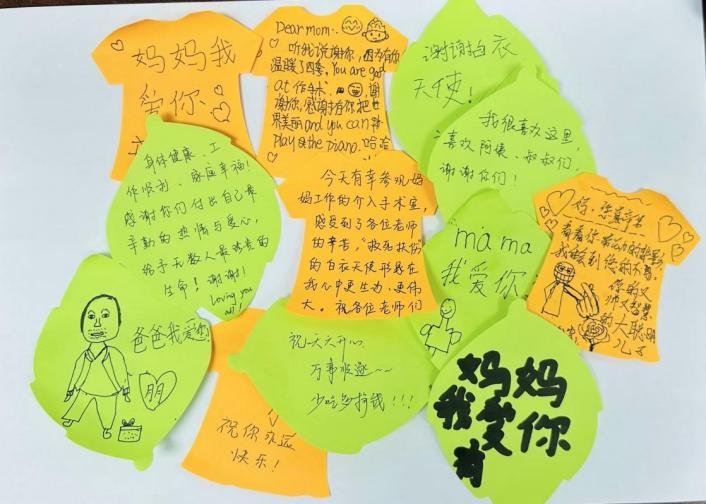 妈妈我
爱你
Dear mom..
听我说谢谢你，因为有你
温暖了四季. You are good
at 作手术. 谢
谢你，感谢有你把世
界美丽 and you can
Play the Piano. 哈哈
谢谢白衣
天使！
我很喜欢这里，
喜欢阿姨、叔叔们，
谢谢你们！
身体健康、工
作顺利、家庭幸福！
感谢你们付出自己最
辛勤的热情与爱心，
给予无数人最珍贵的
生命！谢谢！
loving you
今天有幸参观妈
妈工作的介入手术室，
感受到了各位老师
的辛苦，“救死扶伤”
的白衣天使形象在
我心中更生动、更伟
大。祝各位老师们
mama
我爱你
妈，你真辛苦
看着你
你的又
帅又智慧
的大聪明
儿子
爸爸我爱你
朋
祝你永远
快乐！
祝天天开心
万事顺遂~~
少吃多挣钱！！！
妈妈
我爱你